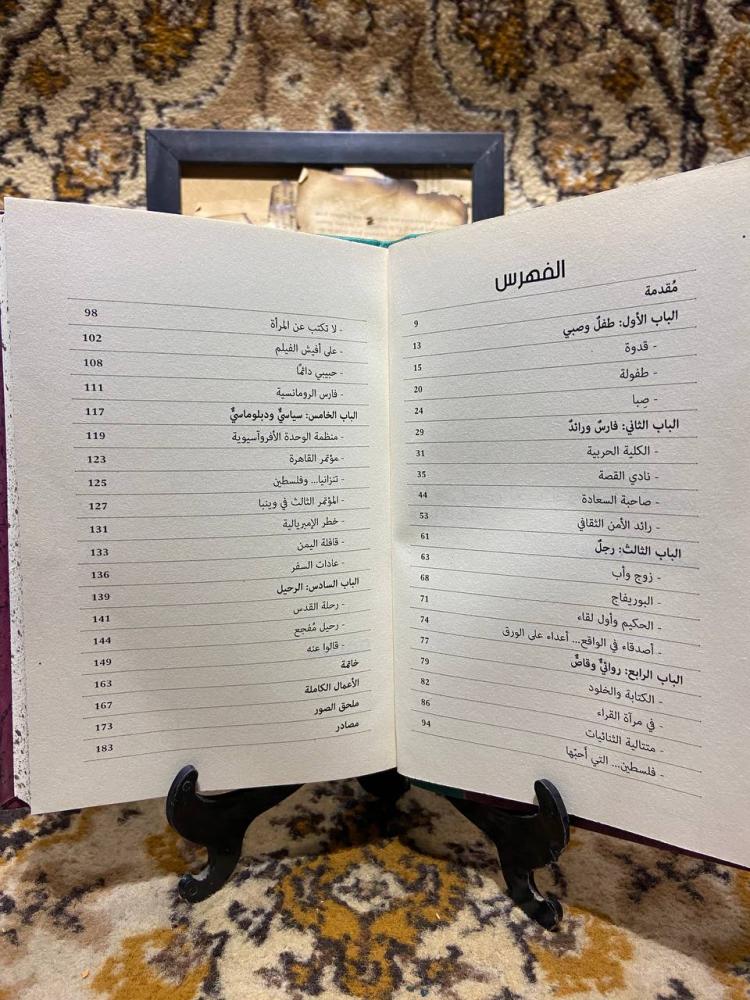 الفهرس
مُقدمة 9
الباب الأول: طفلٌ وصبي 13
- قدوة 15
- طفولة 20
- صِبا 24
الباب الثاني: فارسٌ ورائدٌ 29
- الكلية الحربية 31
- نادي القصة 35
- صاحبة السعادة 44
- رائد الأمن الثقافي 53
الباب الثالث: رجلٌ 61
- زوج وأب 63
- البوريفاج 68
- الحكيم وأول لقاء 71
- أصدقاء في الواقع... أعداء على الورق 74
الباب الرابع: روائيٌّ وقاصٌّ 77
- الكتابة والخلود 79
- في مرآة القراء 82
- متتالية الثنائيات 86
- فلسطين... التي أحبّها 94
- لا تكتب عن المرأة 98
- على أفيش الفيلم 102
- حبيبي دائمًا 108
- فارس الرومانسية 111
الباب الخامس: سياسيٌّ ودبلوماسيٌّ 117
- منظمة الوحدة الأفروآسيوية 119
- مؤتمر القاهرة 123
- تنزانيا... وفلسطين 125
- المؤتمر الثالث في وينبا 127
- خطر الإمبريالية 131
- قافلة اليمن 133
- عادات السفر 136
الباب السادس: الرحيل 139
- رحلة القدس 141
- رحيل مُفجع 144
- قالوا عنه 149
خاتمة 163
الأعمال الكاملة 167
ملحق الصور 173
مصادر 183